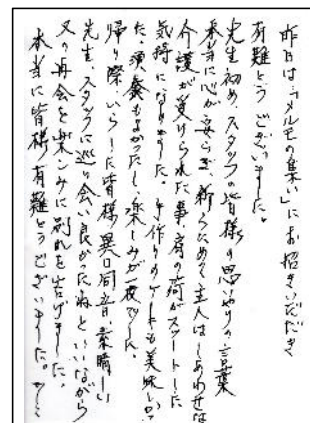 昨日は「メルモの集い」にお招きいただき
有難とうございました。
先生初め、スタッフの皆様の思いやりの言葉
本当に心が安らぎ、新らためて主人はしあわせな
介護が受けられた事、肩の荷がスゥートした
気持になりました。手作りのケーキも美味しかっ
た、演奏もよかったし、楽しみが一夜でした。
帰り際いらした皆様異口同音、素晴しい
先生、スタッフに巡り会い良かったねといいながら
又の再会を楽しみに別れを告げました。
本当に皆様有難とうございました。